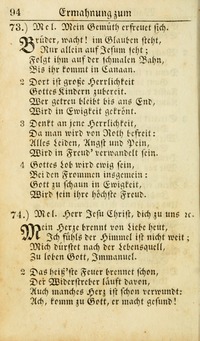 94 Ermahnung zum
73.) Mel. Mein Gemüth erfreuet sich.
Brüder, wacht! im Glauben steht,
Nur allein auf Jesum seht;
Folgt ihm auf der schmalen Bahn,
Bis ihr kommt in Canaan.
2 Dort ist große Herrlichkeit
Gottes Kindern zubereit.
Wer getreu bleibt bis ans End,
Wird in Ewigkeit gekrönt.
3 Denkt an jene Herrlichkeit,
Da man wird von Noth befreit:
Alles Leiden, Angst und Pein,
Wird in Freud' verwandelt sein.
4 Gottes Lob wird ewig sein,
Bei den Frommen insgemein:
Gott zu schaun in Ewigkeit,
Wird sein ihre höchste Freud.
74.) Mel. Herr Jesu Christ, dich zu uns ꝛc.
Mein Herze brennt von Liebe heut,
Ich fühls der Himmel ist nicht weit;
Mich dürstet nach der Lebensquell,
Zu loben Gott, Immanuel.
2 Das heiß'ste Feuer brennet schon,
Der Widerstreber läuft davon,
Auch manches Herz ist schon verwundt:
Ach, komm zu Gott, er macht gesund!